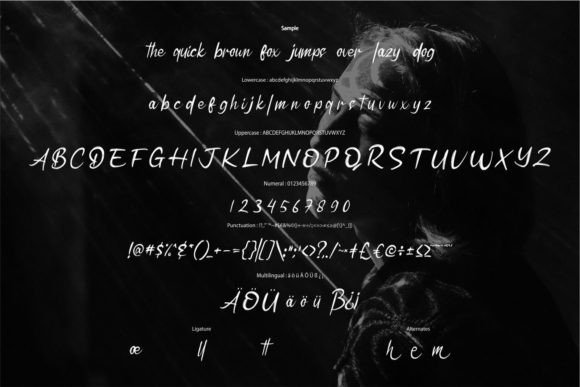 Sample
the quick brown fox jumps over lazy dog
Lowercase : abcdefghijklmnopqrstuvwxyz
abcdefghijklmnopqrstuvwxyz
Uppercase : ABCDEFGHIJKLMNOPQRSTUVWXYZ
ABCDEFGHIJKLMNOPQRSTUVWXYZ
Numeral : 0123456789
1234567890
Punctuation :
!@#$%^&*()_+-={}|[]\:";'<>?,./~
Multilingual : ä ö ü Ä Ö Ü ß ¿ ¡
ÄÖÜ äöü ß¿¡
Ligature Alternates
æ ll tt h e m